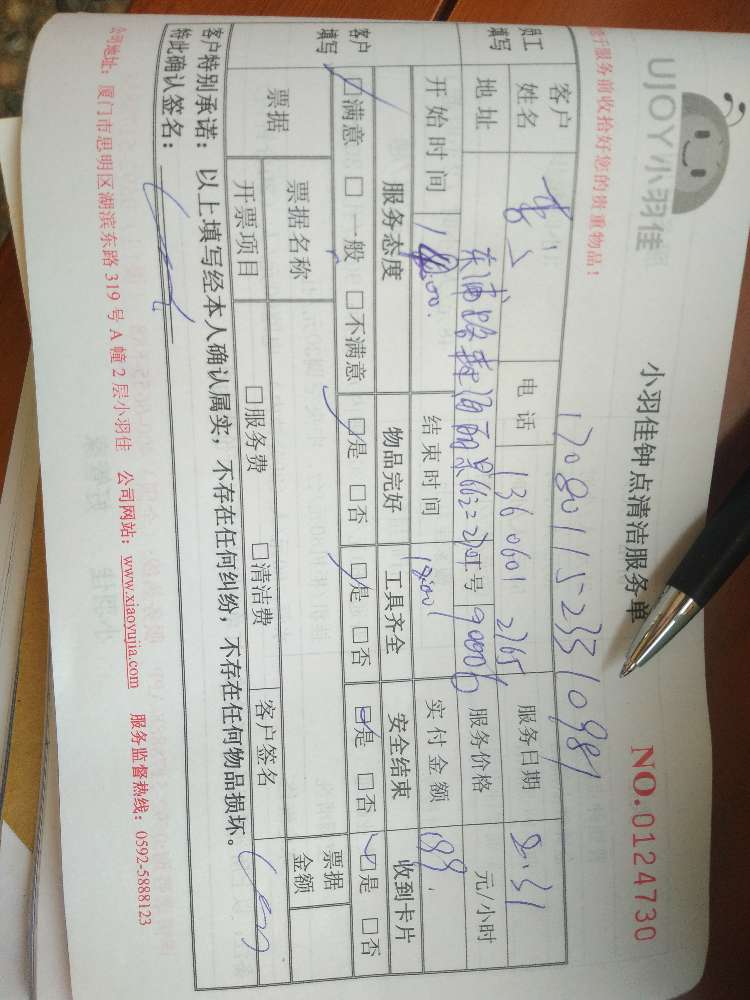 UJOY小羽佳
小羽佳钟点清洁服务单
NO.0124730
服务前收拾好您的贵重物品！
1708011523310981
员工填写
客户姓名 李 电话 13606012765 服务日期 8.31
地址 东浦路 海丽景 工号 90006 服务价格 元/小时
开始时间 :00. 结束时间 实付金额 199.
客户填写
服务态度 物品完好 工具齐全 安全结束 收到卡片
☑满意 □一般 □不满意 ☑是 □否 ☑是 □否 ☑是 □否 ☑是 □否
票据 票据名称 客户签名 票据金额
开票项目 □服务费 □清洁费
客户特别承诺：以上填写经本人确认属实，不存在任何纠纷，不存在任何物品损坏。
特此确认签名：
公司地址：厦门市思明区湖滨东路 319 号 A 幢 2 层小羽佳 公司网站：www.xiaoyujia.com 服务监督热线：0592-5888123